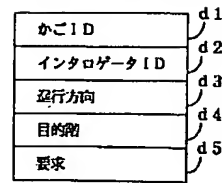 かごID
d1
インタロゲータID
d2
運行方向
d3
目的階
d4
要求
d5